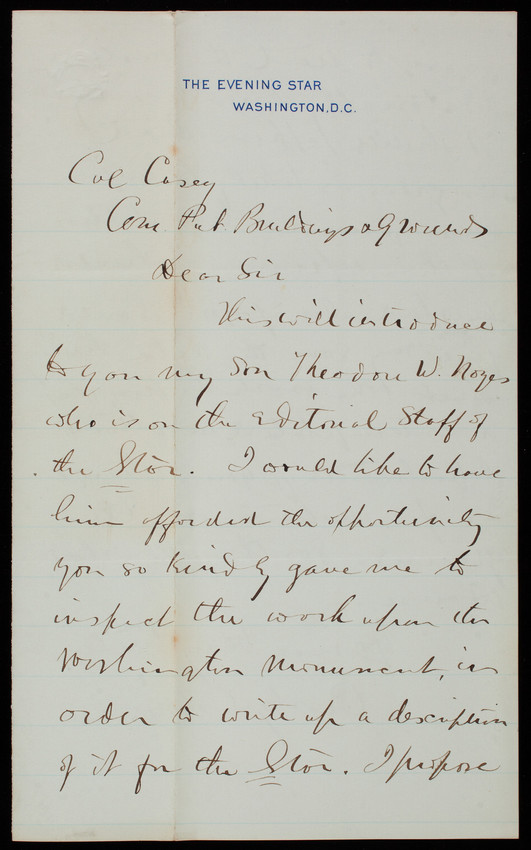 THE EVENING STAR
WASHINGTON, D.C.
Col Casey
Com. Pub. Buildings & Grounds
Dear Sir
This will introduce
to you my Son Theodore W. Noyes
who is on the Editorial Staff of
the Star. I would like to have
him afforded the opportunity
you so kindly gave me to
inspect the work upon the
Washington Monument, in
order to write up a description
of it for the Star. I propose